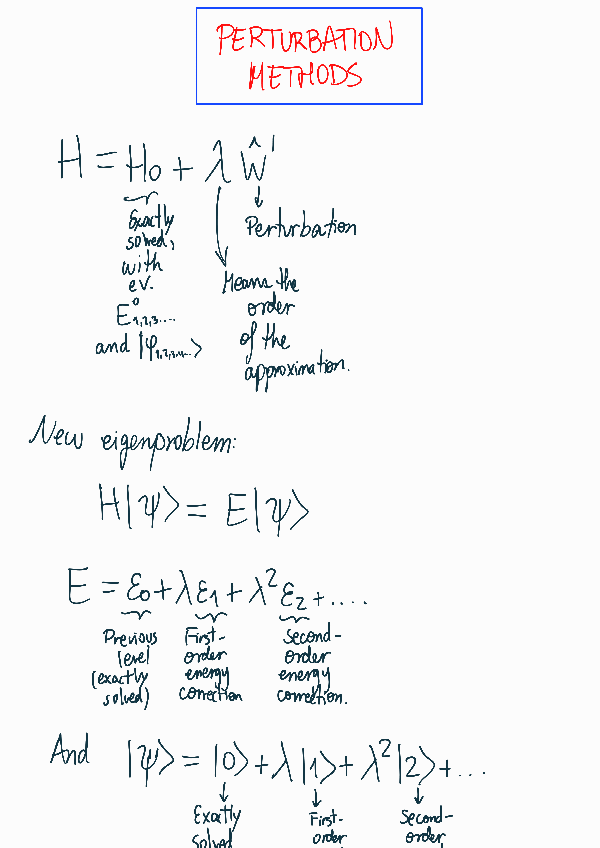 PERTURBATION
METHODS
H = H0 + λ Ŵ'
Exactly
solved,
with
ev.
E⁰1,2,3....
and |φ1,2,3,...⟩
Perturbation
Means the
order
of the
approximation.
New eigenproblem:
H|ψ⟩ = E|ψ⟩
E = ε0 + λε1 + λ²ε2 + ....
Previous
level
(exactly
solved)
First-
order
energy
correction
Second-
order
energy
correction.
And |ψ⟩ = |0⟩ + λ|1⟩ + λ²|2⟩ + ...
Exactly
solved
First-
order
Second-
order